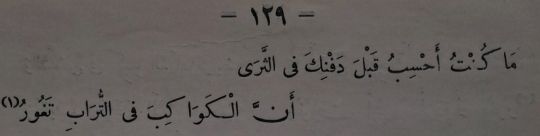 – ١٢٩ –
مَا كُنْتُ أَحْسِبُ قَبْلَ دَفْنِكَ فى الثَّرَى
أَنَّ الْكَوَاكِبَ فى التُّرَابِ تَغُورُ(١)